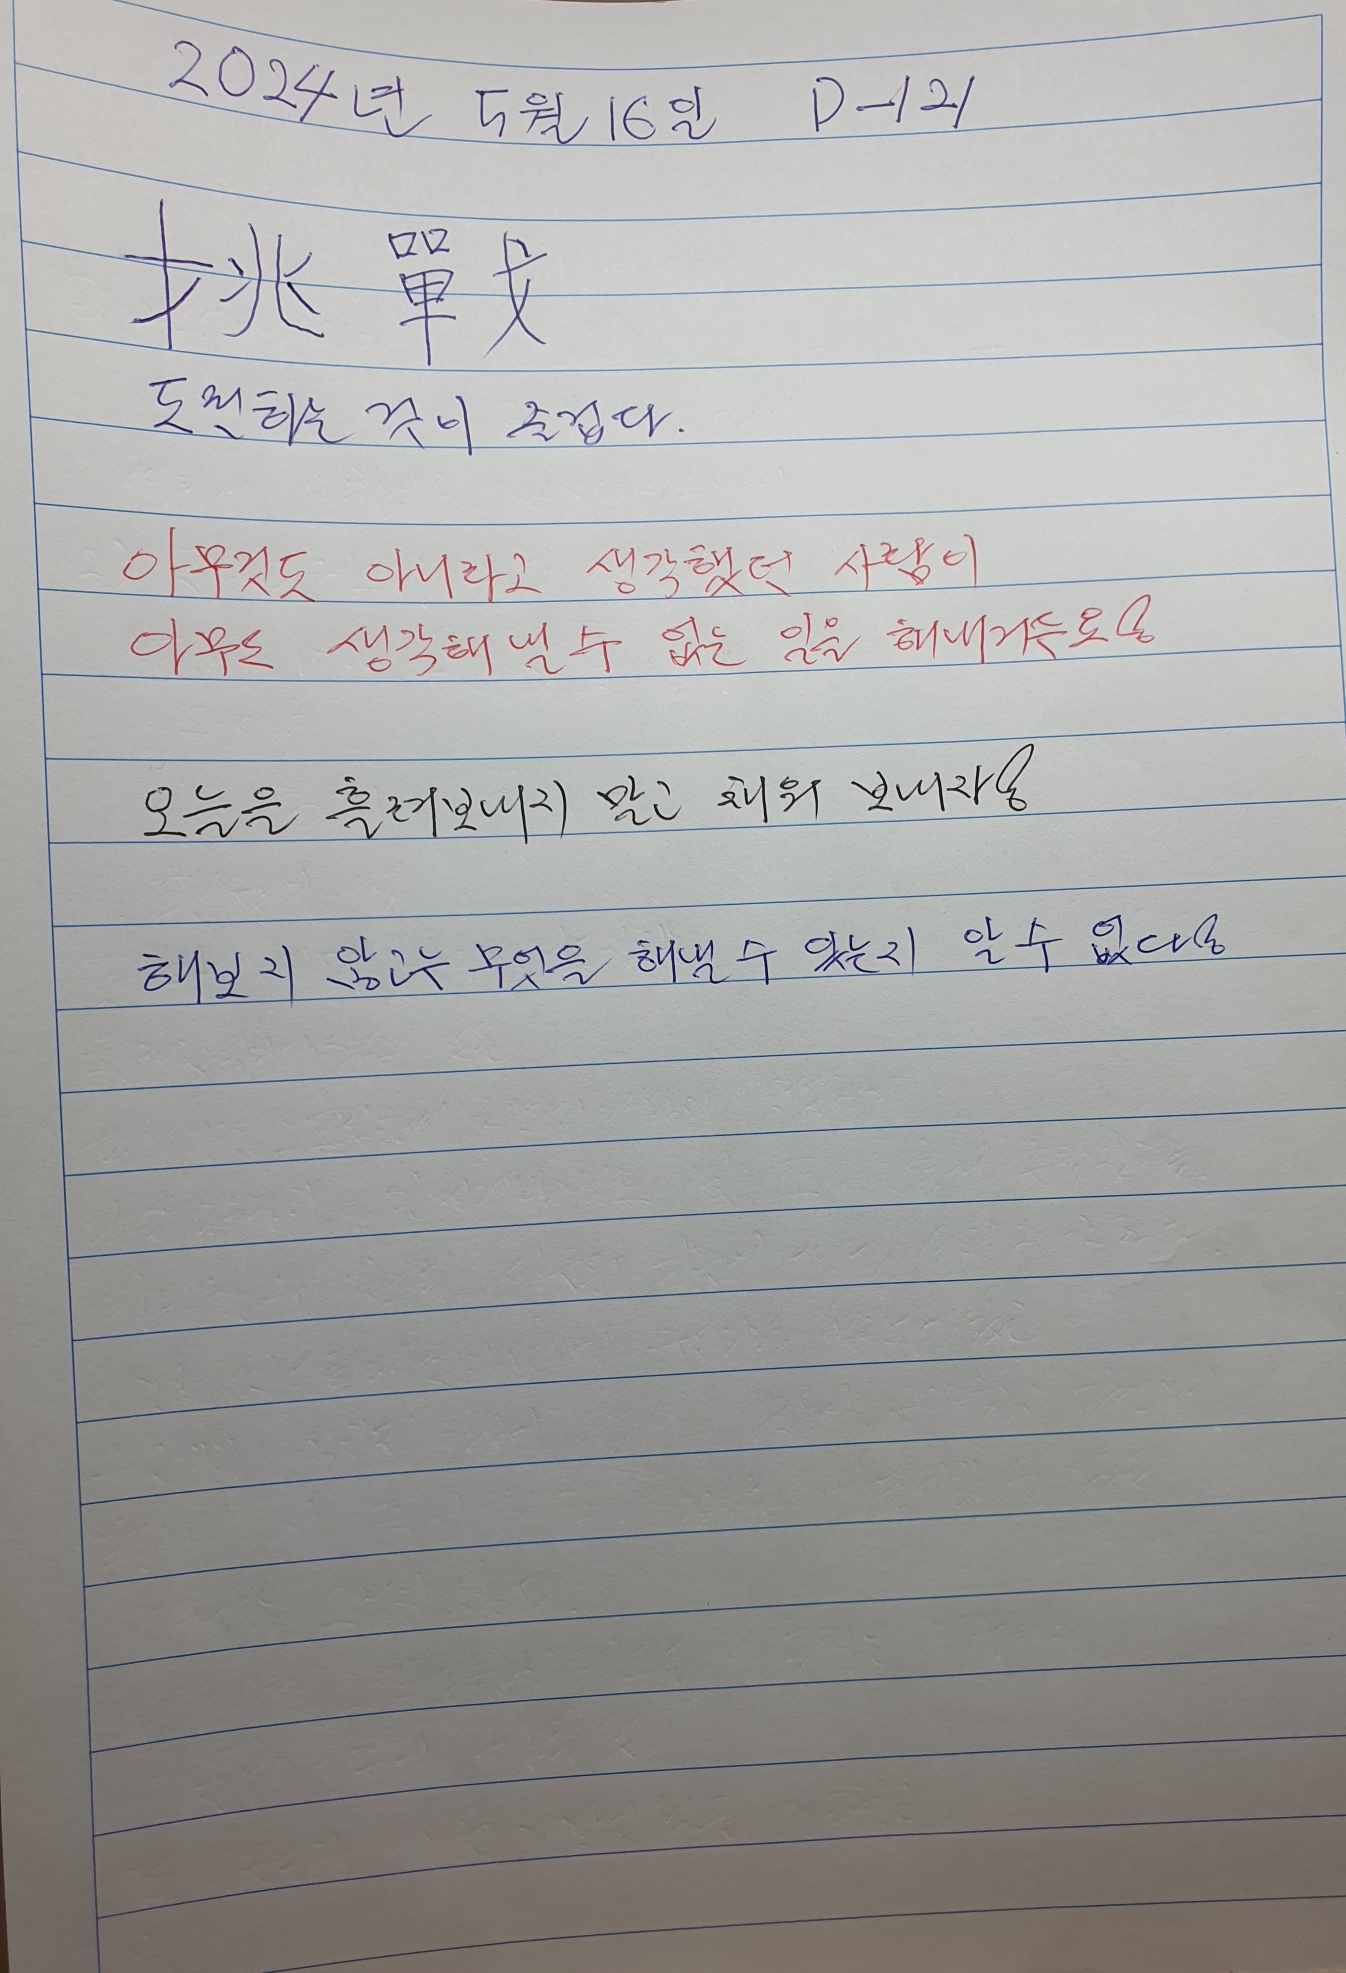 2024년 5월 16일 D-121
挑戰
도전하는 것이 즐겁다.
아무것도 아니라고 생각했던 사람이
아무도 생각해 낼 수 없는 일을 해내거든요!
오늘을 흘려보내지 말고 채워 보내자!
해보지 않고는 무엇을 해낼 수 있는지 알 수 없다!